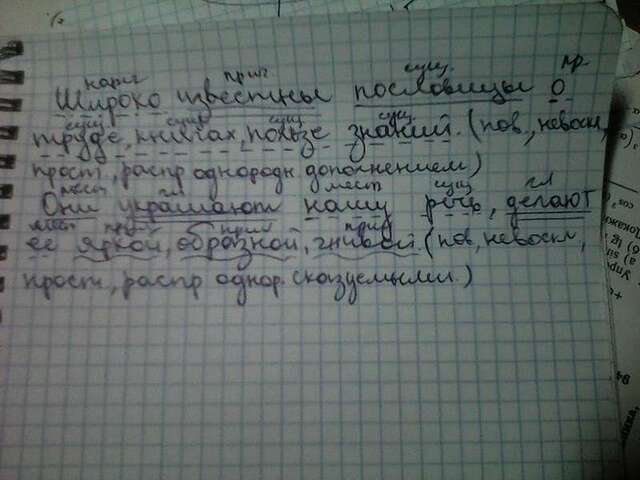 нареч прич сущ. пр.
Широко известны пословицы о
сущ сущ сущ сущ.
труде, книгах, пользе знаний. (пов., невоскл,
прост, распр однородн. дополнением)
мест гл мест сущ гл
Они украшают нашу речь, делают
мест прил прил прил
ее яркой, образной, живой (пов, невоскл,
прост, распр однор. сказуемыми.)